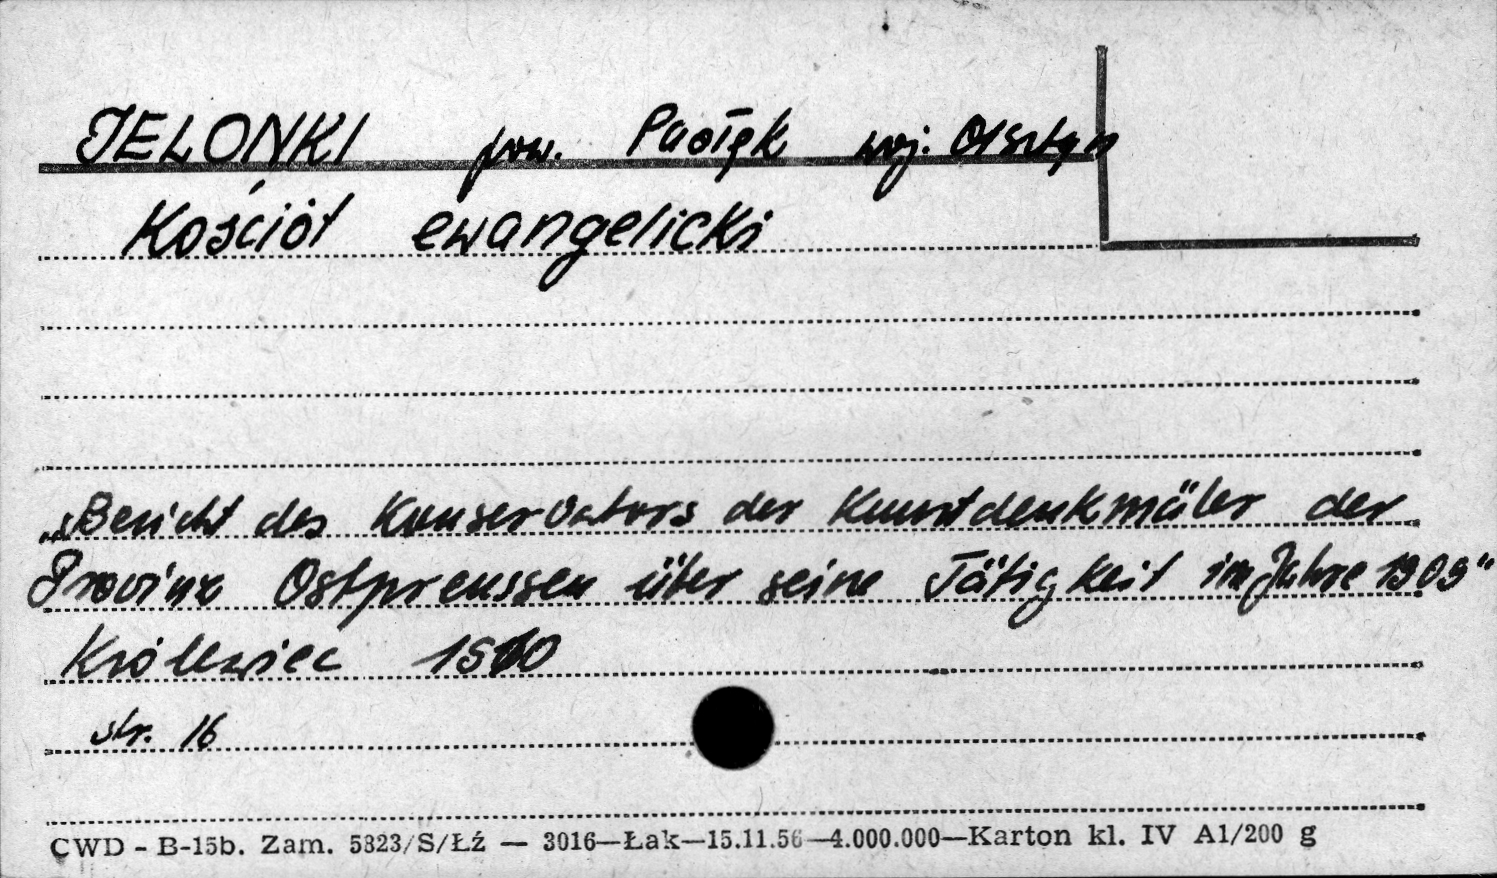 JELONKI pow. Pasłęk woj. Olsztyn
Kościół ewangelicki
„Bericht des Konservators der Kunstdenkmäler der
Provinz Ostpreussen über seine Tätigkeit im Jahre 1909"
Królewiec 1910
str. 16
CWD - B-15b. Zam. 5823/S/Łź — 3016—Łak—15.11.56—4.000.000—Karton kl. IV A1/200 g